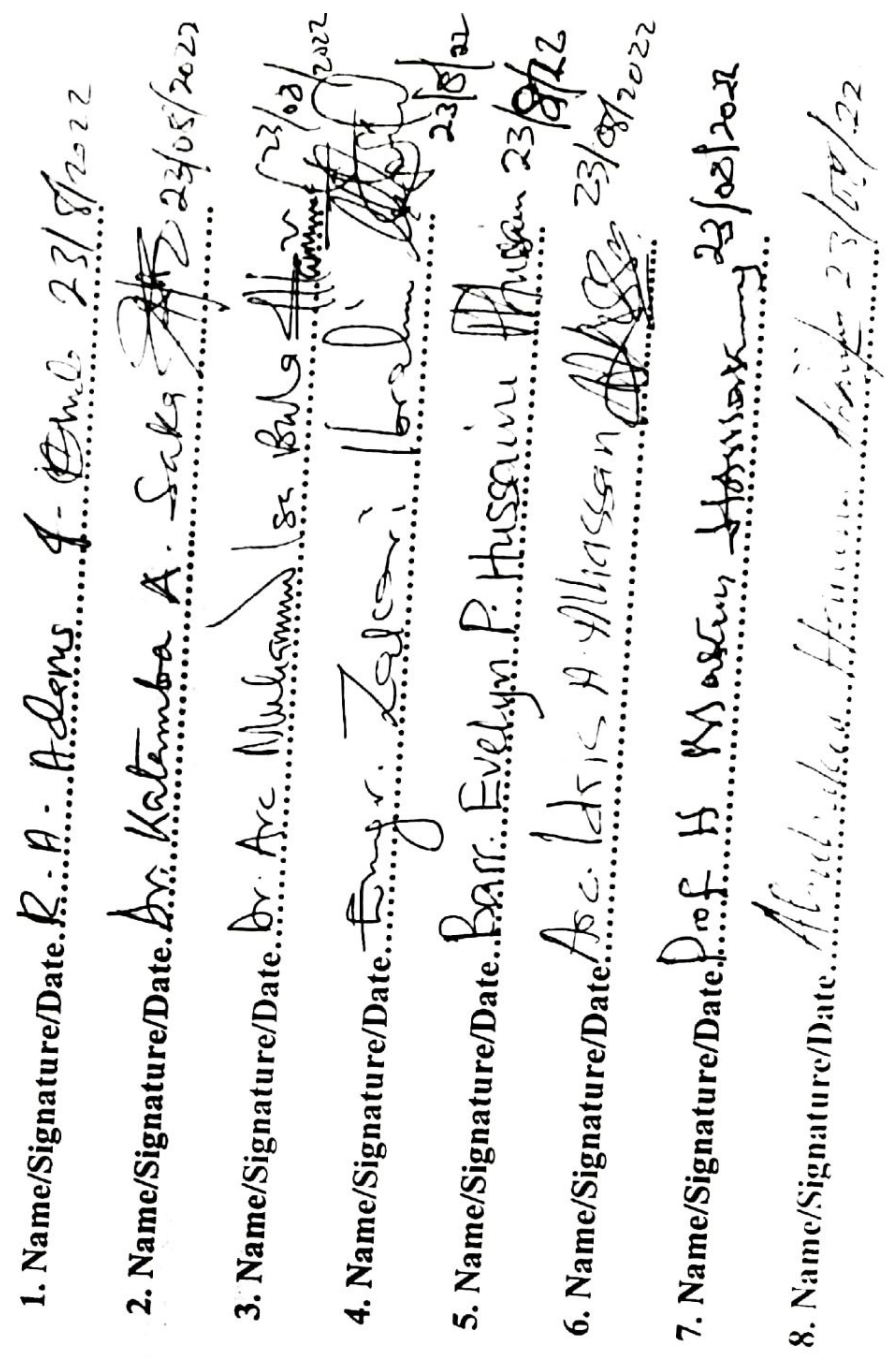 1. Name/Signature/Date. R. A. Adams 23/8/2022
2. Name/Signature/Date. Dr. Katamba A. Saka 23/08/2022
3. Name/Signature/Date. Dr. Arc Muhammad Isa Bala 23/08/2022
4. Name/Signature/Date. Engr. Zakari Ibrahim 23/8/22
5. Name/Signature/Date. Barr. Evelyn P. Hussaini 23/8/22
6. Name/Signature/Date. Arc. Idris A. Alhassan 23/08/2022
7. Name/Signature/Date. Prof H 23/08/2022
8. Name/Signature/Date. 23/08/22